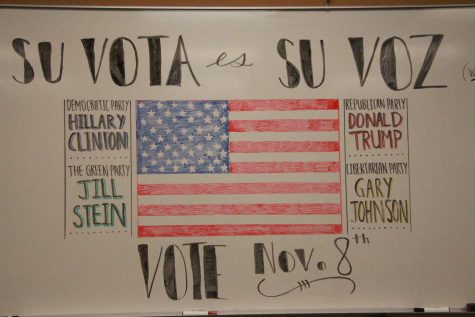 SU VOTA es SU VOZ
DEMOCRATIC PARTY
HILLARY
CLINTON
THE GREEN PARTY
JILL
STEIN
REPUBLICAN PARTY
DONALD
TRUMP
LIBERTARIAN PARTY
GARY
JOHNSON
VOTE Nov. 8th